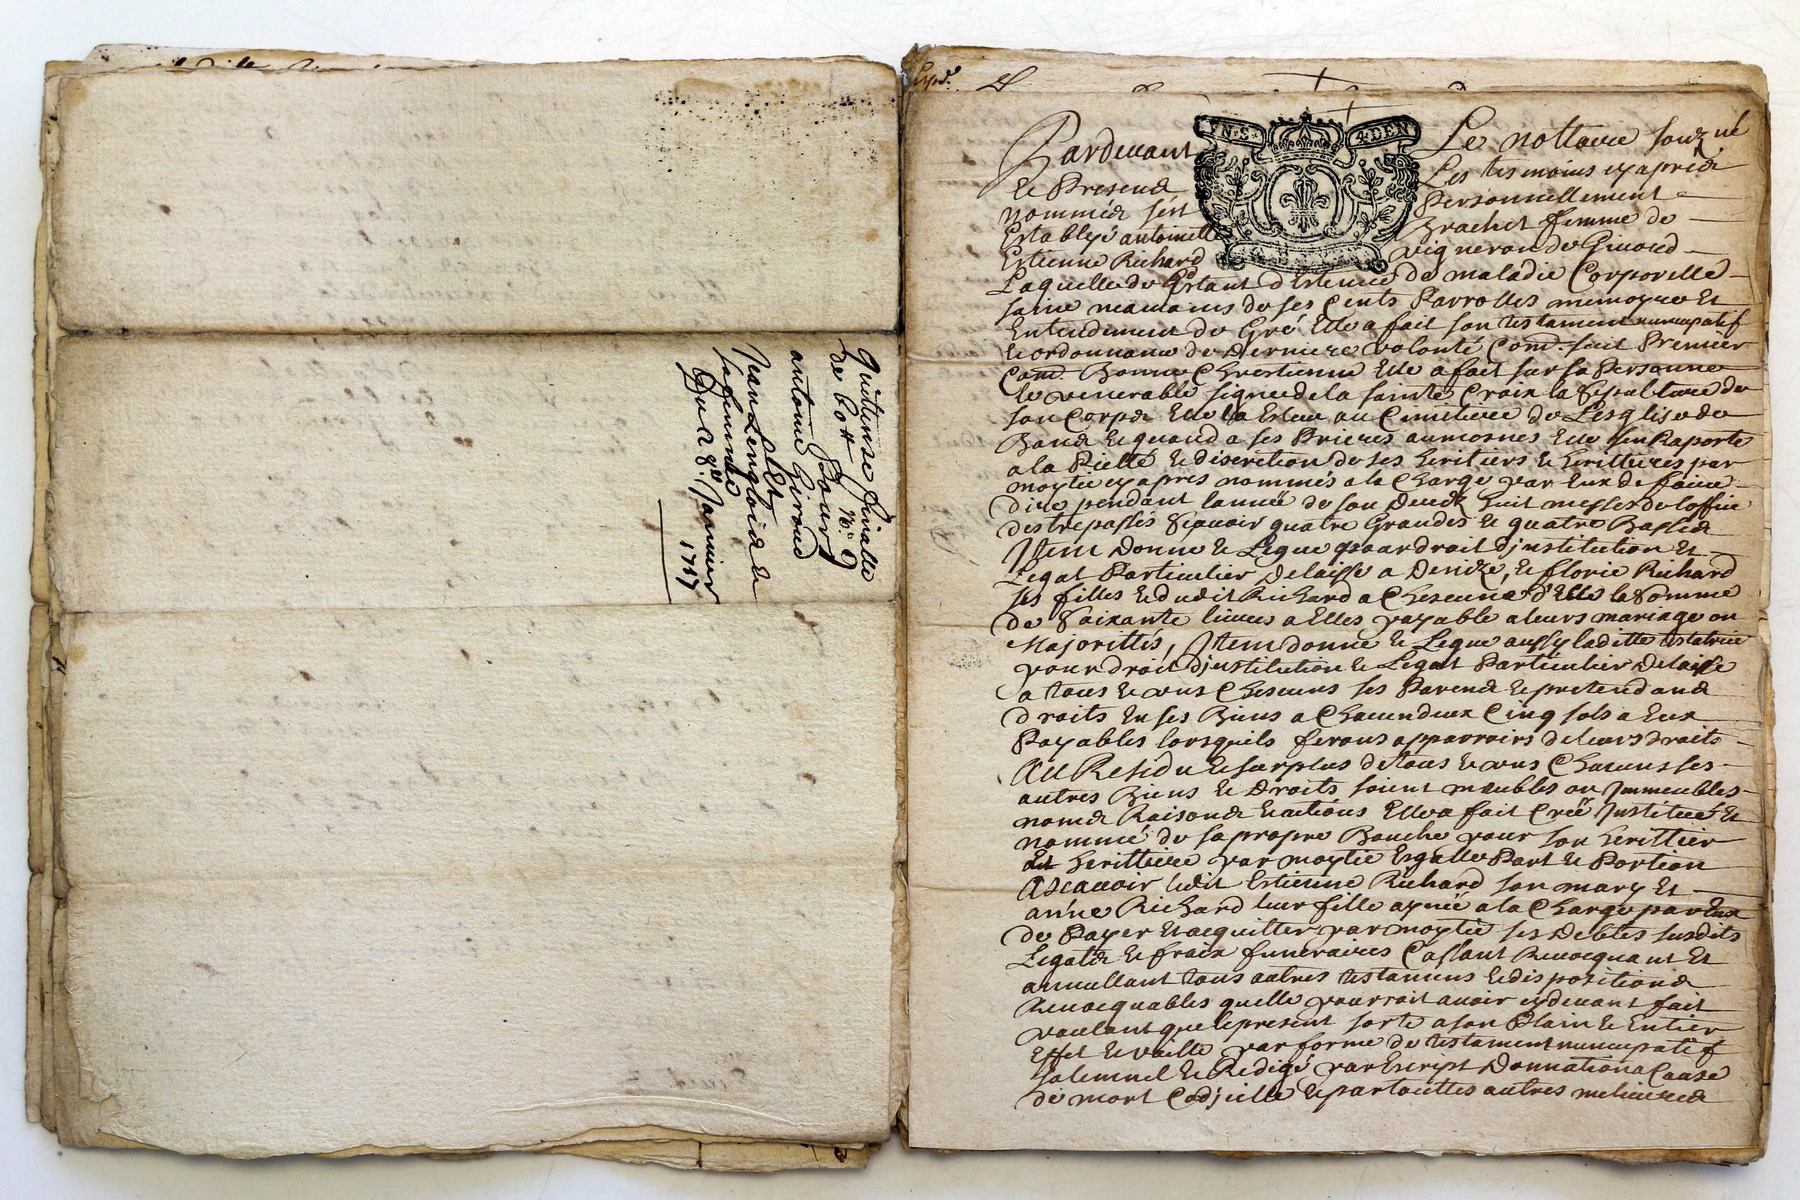 Quittense finalle
de 60 tt N.o 9
Pour
antoine Giroud
et
Jean Lenglois &
sa femme
Du 28.e Janvier
1757
Exp.e
UN.S. 4.DEN
Pardevant Le nottaire souz.né
& Presend Les tesmoins cyapred
nommés fert Personnellement
Establye antoinette Brachet femme de
Estienne Richard vigneron de Givord
Laquelle de Gr estant d'etenue de maladie Corporelle
saine neamoins de ses Cents Parrolles memoyre Et
Entendement de Gré Elle a fait son testament nuncupatif
& ordonnance de derniere volonté Com.e suit Premier
Com.e Bonne Chrestienne Elle a fait sur sa Personne
le venerable signe de la sainte Croix la sepulture de
son Corps Elle la Esleu au Cimitiere de L'esglise de
Band & quand a ses Prieres aumosnes Elle s'en Raporte
a la Pietté & discrition de ses heritiers & herittieres par
moytie cyapres nommés a la Charge par Eux de faire
dire pendant lannée de son Decex huit messes de loffice
des trepassés Sçavoir quatre Grandes & quatre Bassed
Item Donne & Legue pour droit d'institution et
Legat Particulier delaisse a Denize, & florie Richard
ses filles & dudit Richard a Chescune d'Elle la somme
de Soixante livres a Elles payable a leurs mariage ou
Majorittés, Item donne & Legue aussy laditte testatrice
pour droit d'institution & Legat Particulier delaisse
a tous & uns Chescuns ses Parend & pretendand
droits En ses Biens a Chacun deux Cinq sols a Eux
Payables lorsquils ferons apparroirs de leurs droits
Au Residu & surplus de tous & uns Chacuns ses
autres Biens & Droits soient meubles ou Immeubles
nomd Raisond & actions Elle a fait Créé Institué Et
nommé de sa propre Bouche pour son herittier
Et herittiere par moytie Esgalle Part & Portion
Ascavoir ledit Estienne Richard son mary Et
anne Richard leur fille aynée a la Charge par Eux
de Payer & acquitter par moytie ses Debtes susdits
Legatd & fraix funeraires Cassant Revocquant Et
annullant tous autres testamens & dispositiond
Revocquables quelle pourroit avoir cy devant fait
voulant que le present sorte a son Plain & Entier
Effet & vaille par forme de testament nuncupatif
solemnel & Redigé par Escript Donnation a Cause
de mort Codicille & par touttes autres melieured